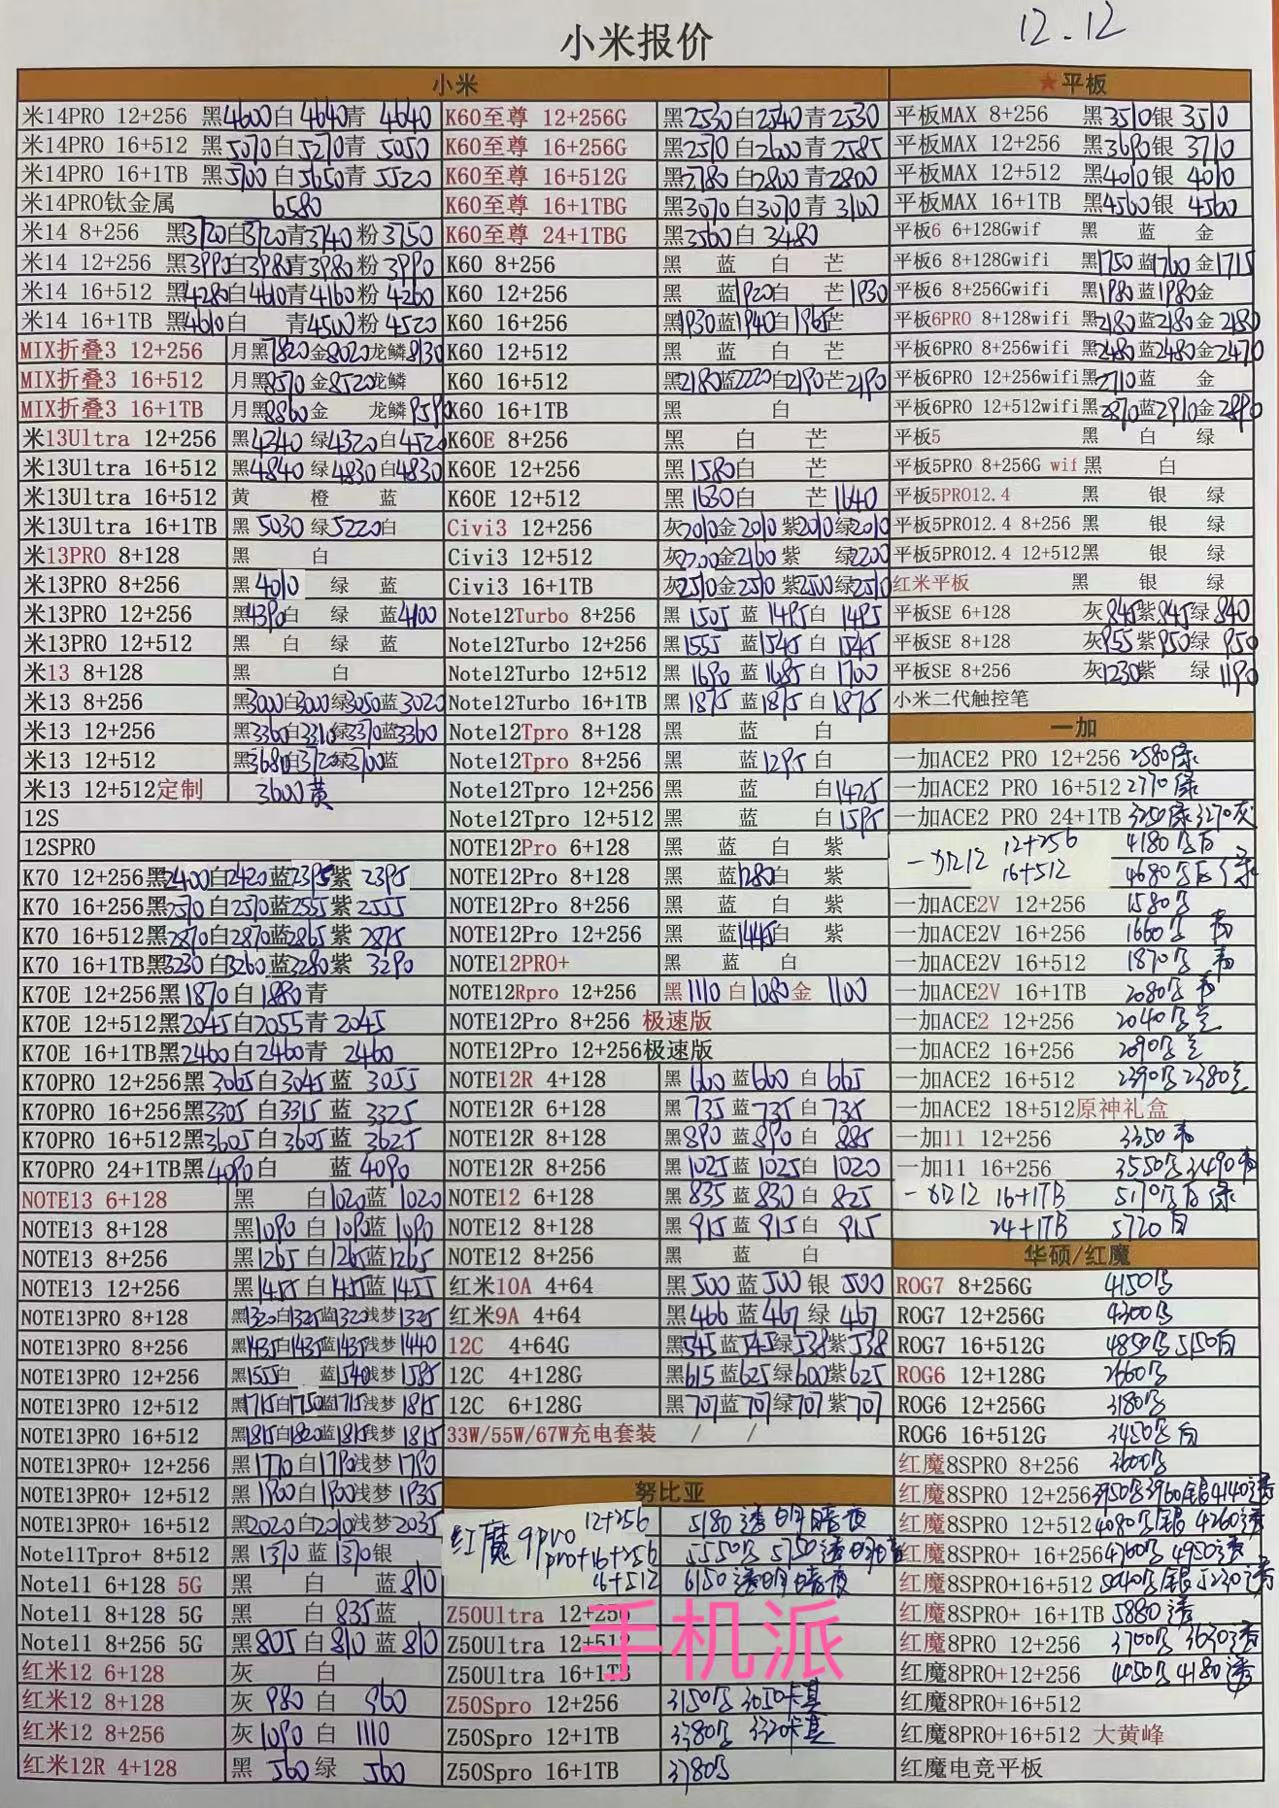 小米报价 12.12
小米
米14PRO 12+256 黑4600白4640青 4640
米14PRO 16+512 黑5070白5270青 5050
米14PRO 16+1TB 黑5700 白5650青 5520
米14PRO钛金属 6580
米14 8+256 黑3720白3720青3740 粉 3750
米14 12+256 黑3990白3980青3980 粉 3990
米14 16+512 黑4280白4610青4160 粉 4260
米14 16+1TB 黑4610白 青4500粉 4520
MIX折叠3 12+256 月黑7820金8020龙鳞8130
MIX折叠3 16+512 月黑8570金8520龙鳞
MIX折叠3 16+1TB 月黑8860金 龙鳞
米13Ultra 12+256 黑4340 绿4320白4520
米13Ultra 16+512 黑4840 绿4830白4830
米13Ultra 16+512 黄 橙 蓝
米13Ultra 16+1TB 黑 5030 绿5220白
米13PRO 8+128 黑 白
米13PRO 8+256 黑 4010 绿 蓝
米13PRO 12+256 黑4390白 绿 蓝4100
米13PRO 12+512 黑 白 绿 蓝
米13 8+128 黑 白
米13 8+256 黑3000白3000绿3050蓝3020
米13 12+256 黑3360白3310绿3370蓝3360
米13 12+512 黑3680白3720绿3700蓝
米13 12+512定制 3600黄
12S
12SPRO
K70 12+256黑2400白2420蓝2395紫 2395
K70 16+256黑2570白2570蓝2555紫 2555
K70 16+512黑2870白2870蓝2865紫 2875
K70 16+1TB黑3230白3260蓝3280紫 3290
K70E 12+256黑1870白1880青
K70E 12+512黑2045白2055青 2045
K70E 16+1TB黑2460白2460青 2460
K70PRO 12+256黑3065白3045蓝 3055
K70PRO 16+256黑3305白3315蓝 3325
K70PRO 16+512黑3605白3605蓝 3625
K70PRO 24+1TB黑4090白 蓝 4090
NOTE13 6+128 黑 白1020蓝 1020
NOTE13 8+128 黑1090 白1090蓝1090
NOTE13 8+256 黑1265 白1265蓝1265
NOTE13 12+256 黑1455 白1455蓝1455
NOTE13PRO 8+128 黑1320白1325蓝1320浅梦 1325
NOTE13PRO 8+256 黑1435白1435蓝1435浅梦 1440
NOTE13PRO 12+256 黑1555白 蓝1540浅梦 1595
NOTE13PRO 12+512 黑1715白1750蓝1715浅梦 1815
NOTE13PRO 16+512 黑1815白1820蓝1815浅梦 1815
NOTE13PRO+ 12+256 黑1770白1790浅梦 1790
NOTE13PRO+ 12+512 黑1900白1900浅梦1935
NOTE13PRO+ 16+512 黑2020白2010浅梦2035
Note11Tpro+ 8+512 黑1370 蓝1370银
Note11 6+128 5G 黑 白 蓝810
Note11 8+128 5G 黑 白 835蓝
Note11 8+256 5G 黑805 白810 蓝 810
红米12 6+128 灰 白
红米12 8+128 灰 980 白 960
红米12 8+256 灰 1090 白 1110
红米12R 4+128 黑 560 绿 560
K60至尊 12+256G 黑2530白2540青2530
K60至尊 16+256G 黑2510白2600青2585
K60至尊 16+512G 黑2780白2800青2800
K60至尊 16+1TBG 黑3070白3070青 3100
K60至尊 24+1TBG 黑3560白 3480
K60 8+256 黑 蓝 白 芒
K60 12+256 黑 蓝1920白 芒1930
K60 16+256 黑1930蓝1940白1965芒
K60 12+512 黑 蓝 白 芒
K60 16+512 黑2180蓝2220白2190芒2190
K60 16+1TB 黑 白
K60E 8+256 黑 白 芒
K60E 12+256 黑 1580白 芒
K60E 12+512 黑 1630白 芒1640
Civi3 12+256 灰2010金2010紫2010绿2010
Civi3 12+512 灰2200金2160紫 绿2200
Civi3 16+1TB 灰2510金2510紫2500绿2510
Note12Turbo 8+256 黑 1505 蓝 1495白 1495
Note12Turbo 12+256 黑1555 蓝1545白 1545
Note12Turbo 12+512 黑 1690 蓝 1685白 1700
Note12Turbo 16+1TB 黑 1875 蓝1875 白1875
Note12Tpro 8+128 黑 蓝 白
Note12Tpro 8+256 黑 蓝1295白
Note12Tpro 12+256 黑 蓝 白1425
Note12Tpro 12+512 黑 蓝 白1595
NOTE12Pro 6+128 黑 蓝 白 紫
NOTE12Pro 8+128 黑 蓝1280白 紫
NOTE12Pro 8+256 黑 蓝 白 紫
NOTE12Pro 12+256 黑 蓝1445白 紫
NOTE12PRO+ 黑 蓝 白
NOTE12Rpro 12+256 黑1110 白1080金 1100
NOTE12Pro 8+256 极速版
NOTE12Pro 12+256极速版
NOTE12R 4+128 黑660 蓝660 白665
NOTE12R 6+128 黑735 蓝735白 735
NOTE12R 8+128 黑890 蓝890白 885
NOTE12R 8+256 黑1025蓝1025白 1020
NOTE12 6+128 黑 835 蓝 830 白 825
NOTE12 8+128 黑 915 蓝 915白 915
NOTE12 8+256 黑 蓝 白
红米10A 4+64 黑500 蓝500 银 500
红米9A 4+64 黑466 蓝467 绿 467
12C 4+64G 黑545蓝545绿538紫538
12C 4+128G 黑615蓝625绿600紫625
12C 6+128G 黑707蓝707绿707紫707
33W/55W/67W充电套装 / /
努比亚
红魔9pro 12+256 5180透明暗夜
pro+16+256
16+512 6150透明暗夜
Z50Ultra 12+256
Z50Ultra 12+512
Z50Ultra 16+1TB
Z50Spro 12+256
Z50Spro 12+1TB
Z50Spro 16+1TB 3780
手机派
★平板
平板MAX 8+256 黑3510银 3510
平板MAX 12+256 黑3690银 3710
平板MAX 12+512 黑4010银 4010
平板MAX 16+1TB 黑4560银 4560
平板6 6+128Gwif 黑 蓝 金
平板6 8+128Gwifi 黑1750蓝1760金1715
平板6 8+256Gwifi 黑1980蓝1980金
平板6PRO 8+128wifi 黑2180蓝2180金 2180
平板6PRO 8+256wifi 黑2480蓝2480金2470
平板6PRO 12+256wifi黑2710蓝 金
平板6PRO 12+512wifi黑2870蓝2910金2890
平板5 黑 白 绿
平板5PRO 8+256G wif 黑 白
平板5PRO12.4 黑 银 绿
平板5PRO12.4 8+256 黑 银 绿
平板5PRO12.4 12+512黑 银 绿
红米平板 黑 银 绿
平板SE 6+128 灰845紫845绿840
平板SE 8+128 灰955紫950绿950
平板SE 8+256 灰1230紫 绿1190
小米二代触控笔
一加
一加ACE2 PRO 12+256 2580绿
一加ACE2 PRO 16+512 2770绿
一加ACE2 PRO 24+1TB 3250绿3270灰
一加12 12+256 4180
16+512 4680
一加ACE2V 12+256 1580
一加ACE2V 16+256 1660
一加ACE2V 16+512 1870
一加ACE2V 16+1TB 2080
一加ACE2 12+256 2040
一加ACE2 16+256 2090
一加ACE2 16+512 2390 2380
一加ACE2 18+512原神礼盒
一加11 12+256 3350
一加11 16+256 3550
一加12 16+1TB 5170
24+1TB 5720白
华硕/红魔
ROG7 8+256G 4150
ROG7 12+256G 4300
ROG7 16+512G 4850 5150白
ROG6 12+128G 2660
ROG6 12+256G 3180
ROG6 16+512G 3450白
红魔8SPRO 8+256 3600
红魔8SPRO 12+256
红魔8SPRO 12+512 4080 4260透
红魔8SPRO+ 16+256 4360 4950透
红魔8SPRO+16+512
红魔8SPRO+ 16+1TB 5880 透
红魔8PRO 12+256 3700 3630透
红魔8PRO+12+256 4050 4180透
红魔8PRO+16+512
红魔8PRO+16+512 大黄峰
红魔电竞平板